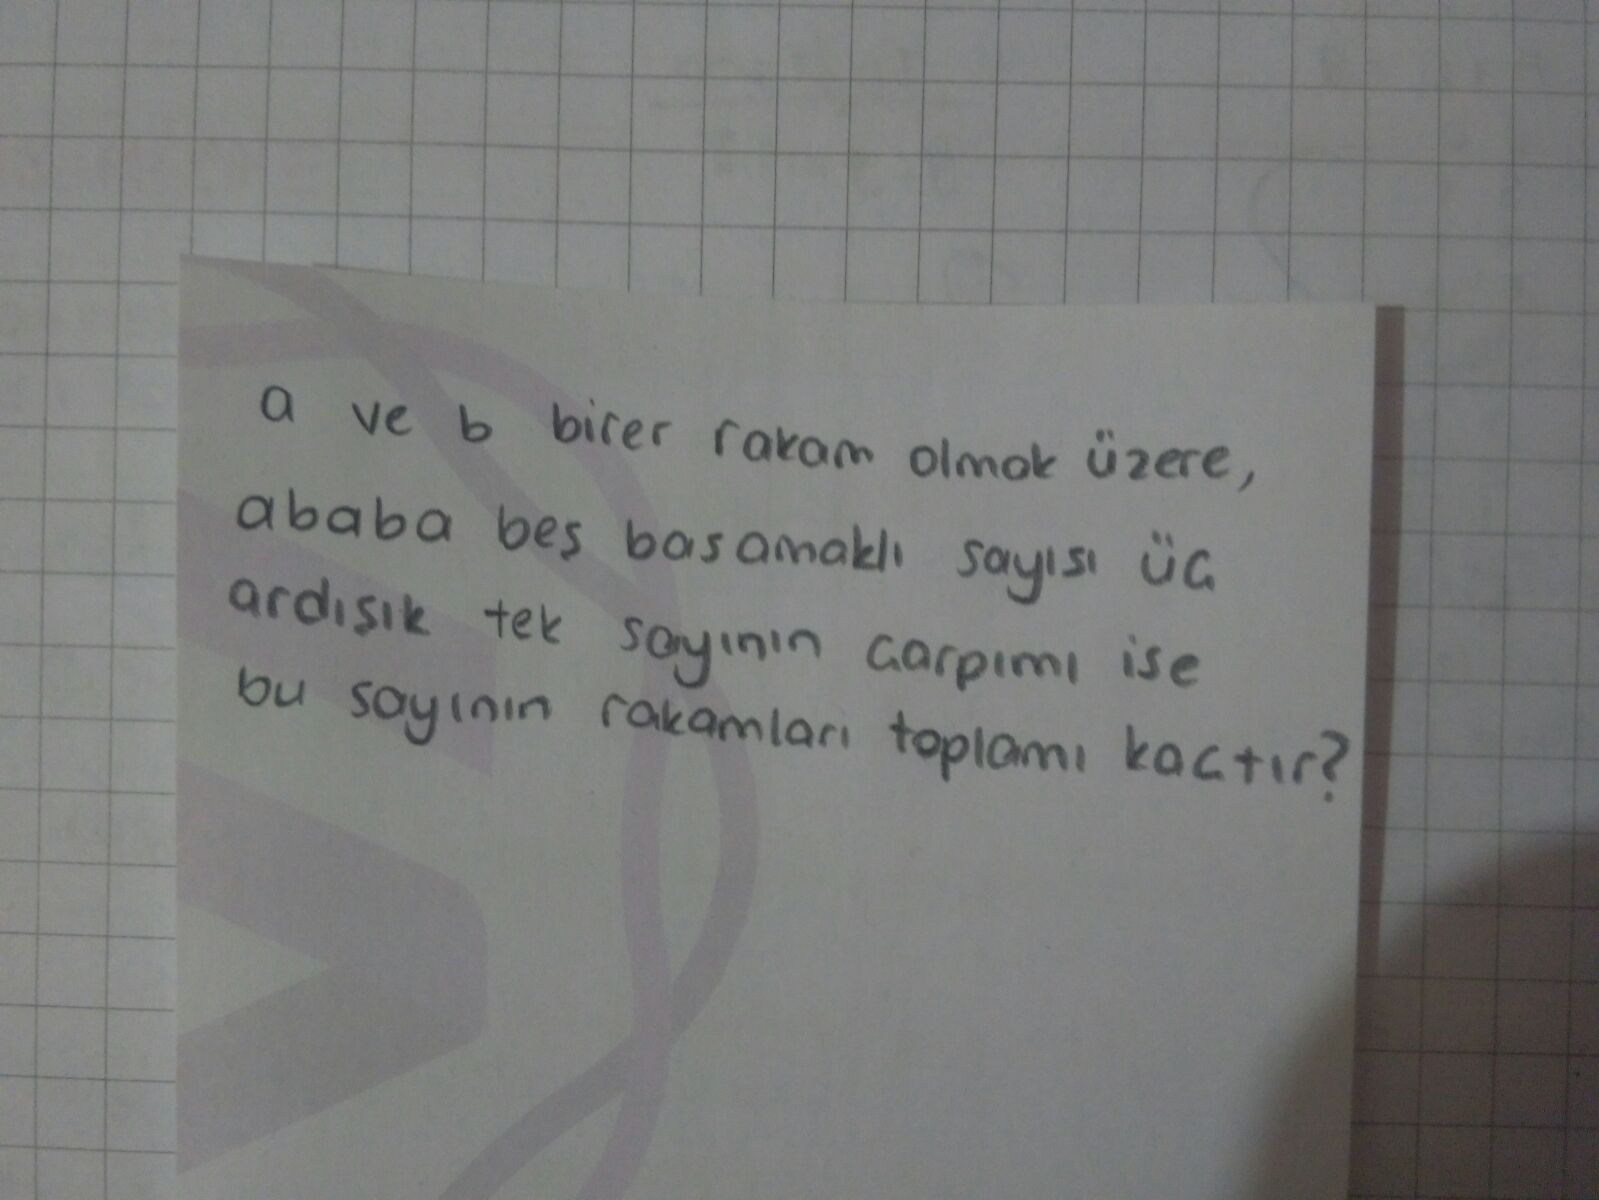 a ve b birer rakam olmak üzere,
ababa beş basamaklı sayısı üç
ardışık tek sayının çarpımı ise
bu sayının rakamları toplamı kaçtır?